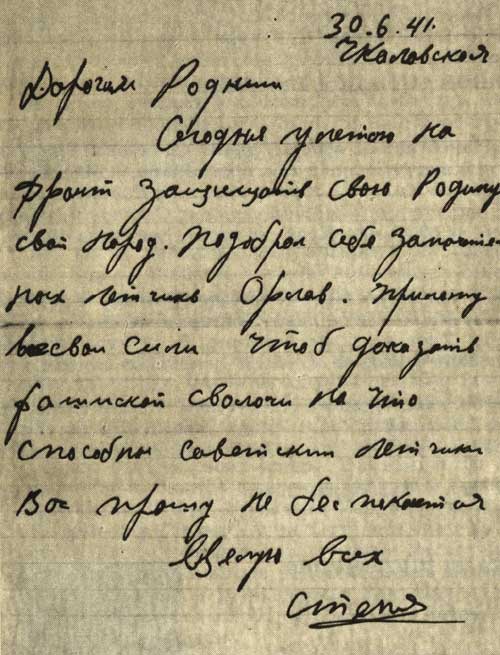 30.6.41.
Чкаловская
Дорогим Родним
Сегодня улетаю на
фронт защищать свою Родину
свой народ. Подобрал себе замечатель-
ных летчиков Орлов. Приложу
все свои силы чтоб доказать
фашисской сволочи на что
способны советскии летчики
Вас прошу не беспокоится
Целую всех
Степа